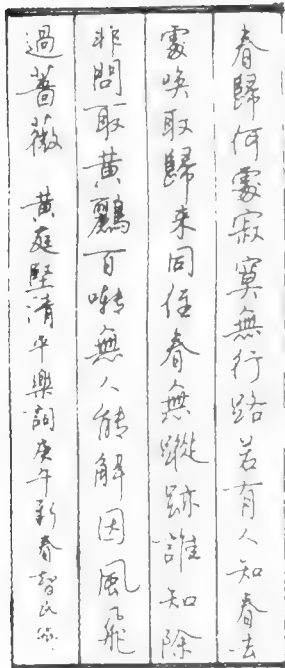 春歸何處寂寞無行路若有人知春去
處喚取歸来同住春無蹤跡誰知除
非問取黃鸝百囀無人能解因風飛
過薔薇 黃庭堅清平樂詞庚午新春智